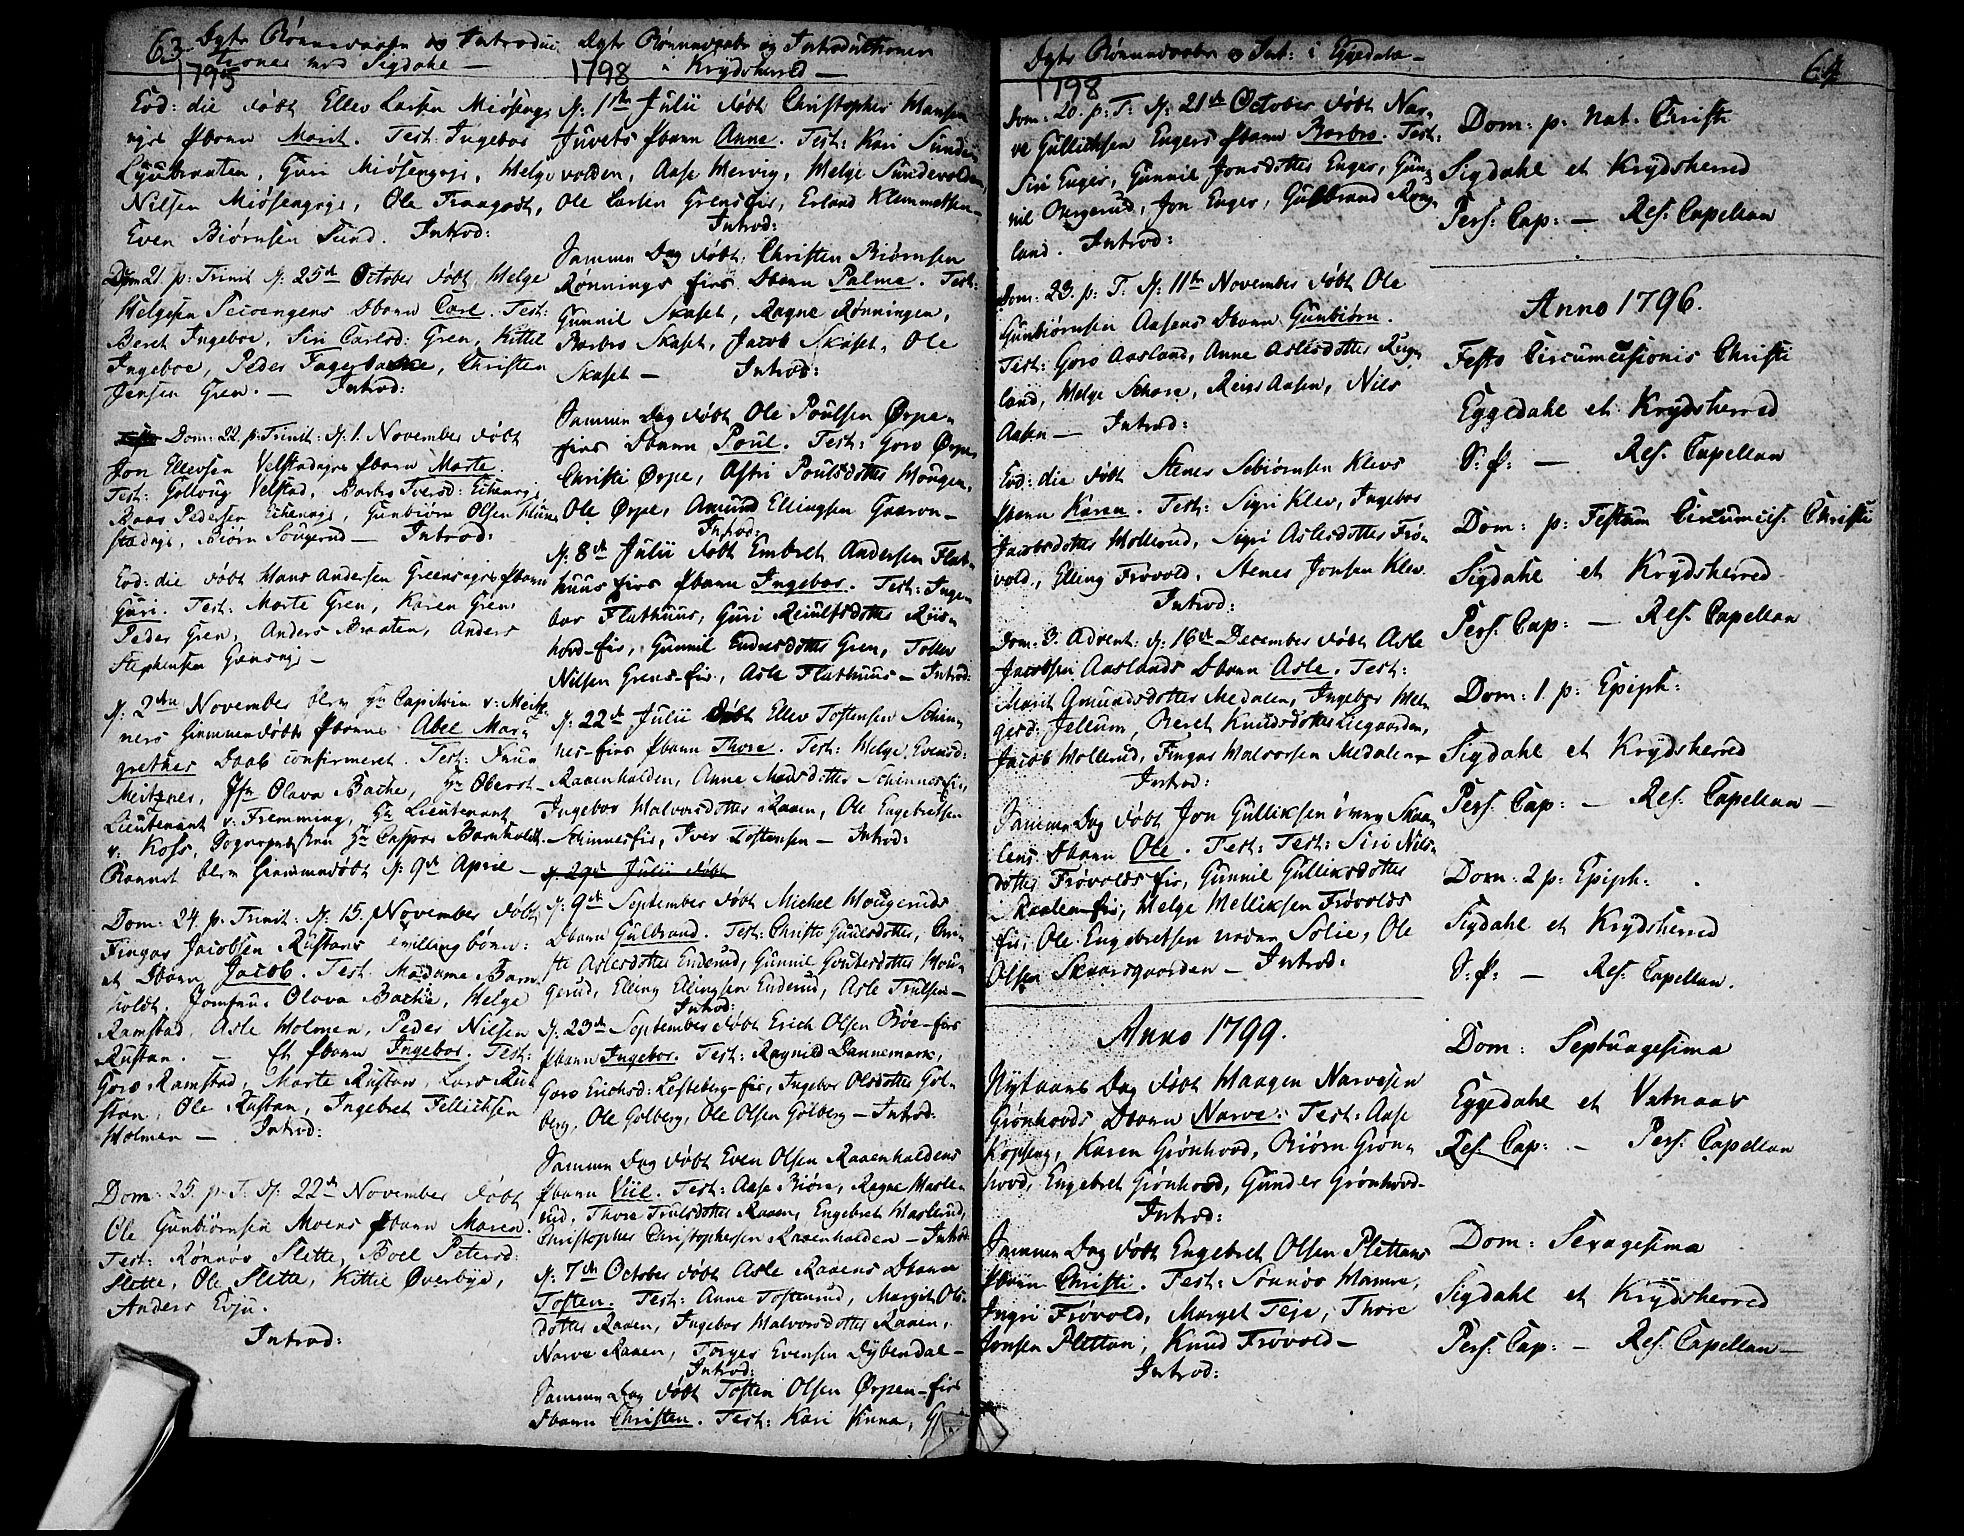 63 Ægte Børnedaabe og Introduc
tioner ved Sigdahl —
1795
Eod: die døbt Ellev Larsen Miøsengs
eys Pbarn Marit. Test: Ingebor
Lyübraaten, Guri Miøsengeje, Helge
Nilsen Miøsengeje, Ole Fraagodt,
Even Biørnsen Lund. Introd:
Dom 21. p: Trinit d: 25de October døbt Helge
Helgesen Dbarn Carl. Test:
Beret Ingeboe, Siri Carlsd: Gren, Kittil
Ingeboe, Peder Fagerbakke, Christen
Jensen Gren. — Introd:
Dom: 22. p: Trinit: d: 1. November døbt
Jon Ellevsen Velstadeyes Pbarn Marte.
Test: Gollaug Velstad, Barbro Iversd: Eikeneye
Pedersen Eikeneye, Gunbiørn Olsen
Biørn Sougerud — Introd:
Eod: die døbt Hans Andersen Greenseyes Pbarn
Guri. Test: Marte Gren, Karen Gren
Peder Gren, Anders Braaten, Anders
Stephensen Grenseje —
d: 2den November blev Hr Capitain v: Meitz-
ners hiemmedøbte Pbarns Abel Mar-
grethes Daab confirmeret. Test: Frue
Meitzner, Jfr Olava Bache, Hr Oberst-
Lieutenant v: Fremming, Hr Lieutenant
v. Koss, Sognepræsten Hr Casper Barnholdt.
Barnet blev hiemmedøbt d: 9de April —
Dom: 24. p. Trinit: d: 15. November døbt
Fingar Jacobsen Rustans tvillingbørn:
et Dbarn Jacob. Test: Madame Barn
holdt, Jomfrue Olava Bache, Helge
Ramstad, Asle Holmen, Peder Nilsen
Rustan. — Et Pbarn Ingebor. Test:
Goro Ramstad, Marte Rustan, Lars Ru
stan, Ole Rustan, Ingebret Tellichsen
Holmen — Introd:
Dom: 25. p. T. d: 22de November døbt
Ole Gunbiørnsen Moens Pbarn Maren.
Test: Rønnov Slette, Boel Petersd:
Slette, Ole Slette, Kittil Øverbye,
Anders Evju.
Introd:
Ægte Børnedaabe og Introductioner
1798 i Krydsherred —
d: 1ste Julii døbt Christopher Hansen
Juvets Pbarn Anne. Test: Kari Sunde-
volden, Aase Hervig, Helge Sundevolden,
Ole Larsen Grenseeie, Erland Klemmetsen —
Introd:
Samme Dag døbt: Christen Biørnsen
Rønnings eies Dbarn Palme. Test:
Gunnil Skaset, Ragne Rønningen,
Barbro Skaset, Jacob Skaset, Ole
Skaset — Introd:
Samme Dag døbt Ole Poulsen Ørpe-
eies Dbarn Poul. Test: Goro Ørpe,
Christi Ørpe, Astri Poulsdotter Hougen,
Ole Ørpe, Amund Ellingsen Gaaren —
Introd:
d: 8de Julii døbt Embret Andersen Flat-
huus eies Pbarn Ingebor. Test: Inge-
bor Flathuus, Guri Reiulfsdotter Riis-
hovd-eie, Gunnil Endresdotter Gren, Tollev
Nilsen Grens-eie, Asle Flathuus — Introd:
d: 22de Julii døbt Ellev Tostensen Schin-
nes-eies Pbarn Thore. Test: Helge Evensd:
Raaenhalden, Anne Madsdotter Schinnes-eie,
Ingebor Halvorsdotter Raaen, Ole Engebretsen
Schinneseie, Iver Tostensen — Introd:
d. 29de Julii døbt
d: 9de September døbt Michel Hougeruds
Dbarn Gulbrand. Test: Christi Guulsdotter, Chri-
sti Aslesdotter Enderud, Gunnil Guntersdotter Hou-
gerud, Elling Ellingsen Enderud, Asle Trulsen —
Introd:
d: 23de September døbt Erich Olsen Bøe-eies
Pbarn Ingebor. Test: Ragnild Dannemark,
Goro Erichsd: Lesteberg-eie, Ingebor Olsdotter Gol-
berg, Ole Golberg, Ole Olsen Golberg — Introd:
Samme Dag døbt Even Olsen Raaenhaldens
Pbarn Viil. Test: Aase Biøre, Ragne Hasle-
rud, Thore Trulsdotter Raaen, Engebret Haslerud,
Christopher Christophersen Raaenhalden — Introd:
d: 7de October døbt Asle Raaens Dbarn
Tosten. Test: Anne Tostenrud, Margit Ols-
dotter Raaen, Ingebor Halvorsdotter Raaen,
Narve Raaen, Torger Evensen Dybendal —
Introd:
Samme Dag døbt Tosten Olsen Ørpen-eies
Dbarn Christen. Test: Kari Kinna,
Ægte Børnedaabe og Int: i Eggedal —
1798
Dom: 20. p: T. d: 21de October døbt Nar-
ve Gullichsen Engers Pbarn Barbro. Test:
Siri Enger, Gunnil Jonsdotter Enger, Gun-
nil Bergerud, Jon Enger, Gulbrand Rong-
land. Introd:
Dom: 23. p: T. d: 11te November døbt Ole
Gunbiørnsen Aasens Dbarn Gunbiørn.
Test: Goro Aasland, Anne Aslesdotter Rug-
land, Helge Schare, Reier Aasen, Nils
Aasen — Introd:
Eod: die døbt Stener Sebiørnsen Klevs
Pbarn Karen. Test: Sigri Klev, Ingebor
Jacobsdotter Mollerud, Sigri Aslesdotter Frø-
vold, Elling Frøvold, Stener Jonsen Klev.
Introd:
Dom: 3. Advent: d: 16de December døbt Asle
Jacobsen Aaslands Dbarn Asle. Test:
Marit Amundsdotter Medalen, Ingebor Hel-
gesd: Jellum, Beret Knudsdotter Liegaarden,
Jacob Mollerud, Fingar Halvorsen Medalen —
Introd:
Samme Dag døbt Jon Gulliksen øvre Skaa-
lens Dbarn Ole. Test: Test: Siri Nils-
dotter Frøvolds eie, Gunnil Gulliksdotter
Skaalen-eie, Helge Helliksen Frøvolds
eie, Ole Engebretsen neden Solie, Ole
Olsen Skaarsgaarden — Introd:
Anno 1799.
Nytaars Dag døbt Haagen Narvesen
Grønhovds Dbarn Narve. Test: Aase
Kopseng, Karen Grønhovd, Biørn Grøn-
hovd, Engebret Grønhovd, Gunder Grønhovd —
Introd:
Samme Dag døbt Engebret Olsen Plettens
Pbarn Christi. Test: Sønnov Hamre,
Ingri Frøvold, Marget Teje, Thore
Jonsen Pletten, Knud Frøvold —
Introd:
64
Dom: p: Nat. Christi
Sigdahl et Krydsherred
Pers: Cap: — Res: Capellan
Anno 1796.
Festo Circumcisionis Christi
Eggedahl et Krydsherred
S: P: — Res. Capellan
Dom: p: Festum Circumcis: Christi
Sigdahl et Krydsherred
Pers. Cap: — Res. Capellan
Dom: 1. p: Epiph:
Sigdahl et Krydsherred
Pers: Cap: — Res. Capellan —
Dom: 2 p: Epiph:
Sigdahl et Krydsherred
S: P: — Res. Capellan.
Dom: Septuagesima
Eggedahl et Vatnaas
Res. Cap: — Pers. Capellan
Dom: Sexagesima
Sigdahl et Krydsherred
Pers. Cap: — Res. Capellan —